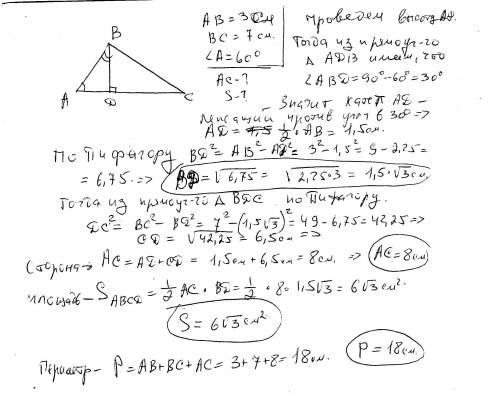 B
A
D
C
AB = 3 см
BC = 7 см.
∠A = 60°
AC - ?
S - ?
Проведем высоту
Тогда из прямоуг-го
△ ADB имеем, что
∠ABD = 90° - 60° = 30°
Значит катет AD -
лежащий против угла в 30° =>
AD = 1/2 · AB = 1,5 см.
По Пифагору BD² = AB² - AD² = 3² - 1,5² = 9 - 2,25 =
= 6,75 => BD = √6,75 = √2,25·3 = 1,5·√3 см
Тогда из прямоуг-го △ BDC по Пифагору.
DC² = BC² - BD² = 7² - (1,5√3)² = 49 - 6,75 = 42,25 =>
CD = √42,25 = 6,5 см =>
Сторона - AC = AD + CD = 1,5 см + 6,5 см = 8 см. => AC = 8 см
площадь - S ABCD = 1/2 AC · BD = 1/2 · 8 · 1,5√3 = 6√3 см².
S = 6√3 см²
Периметр - P = AB + BC + AC = 3 + 7 + 8 = 18 см. P = 18 см.